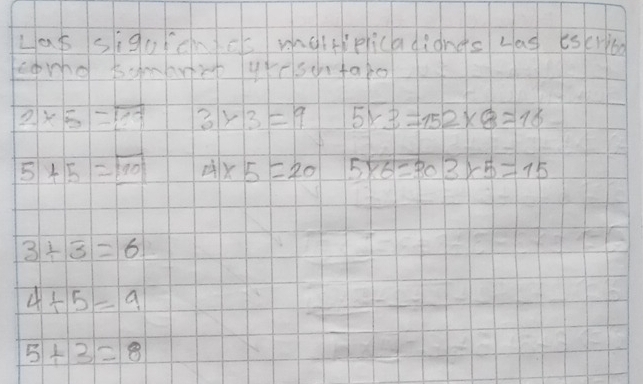 Las siguientes multiplicaciones Las escribo
como y resultado
2x5=10 3x3=9 5x3=15 2x8=16
5+5=10 4x5=20 5x6=30 3x5=15
3+3=6
4+5=9
5+3=8